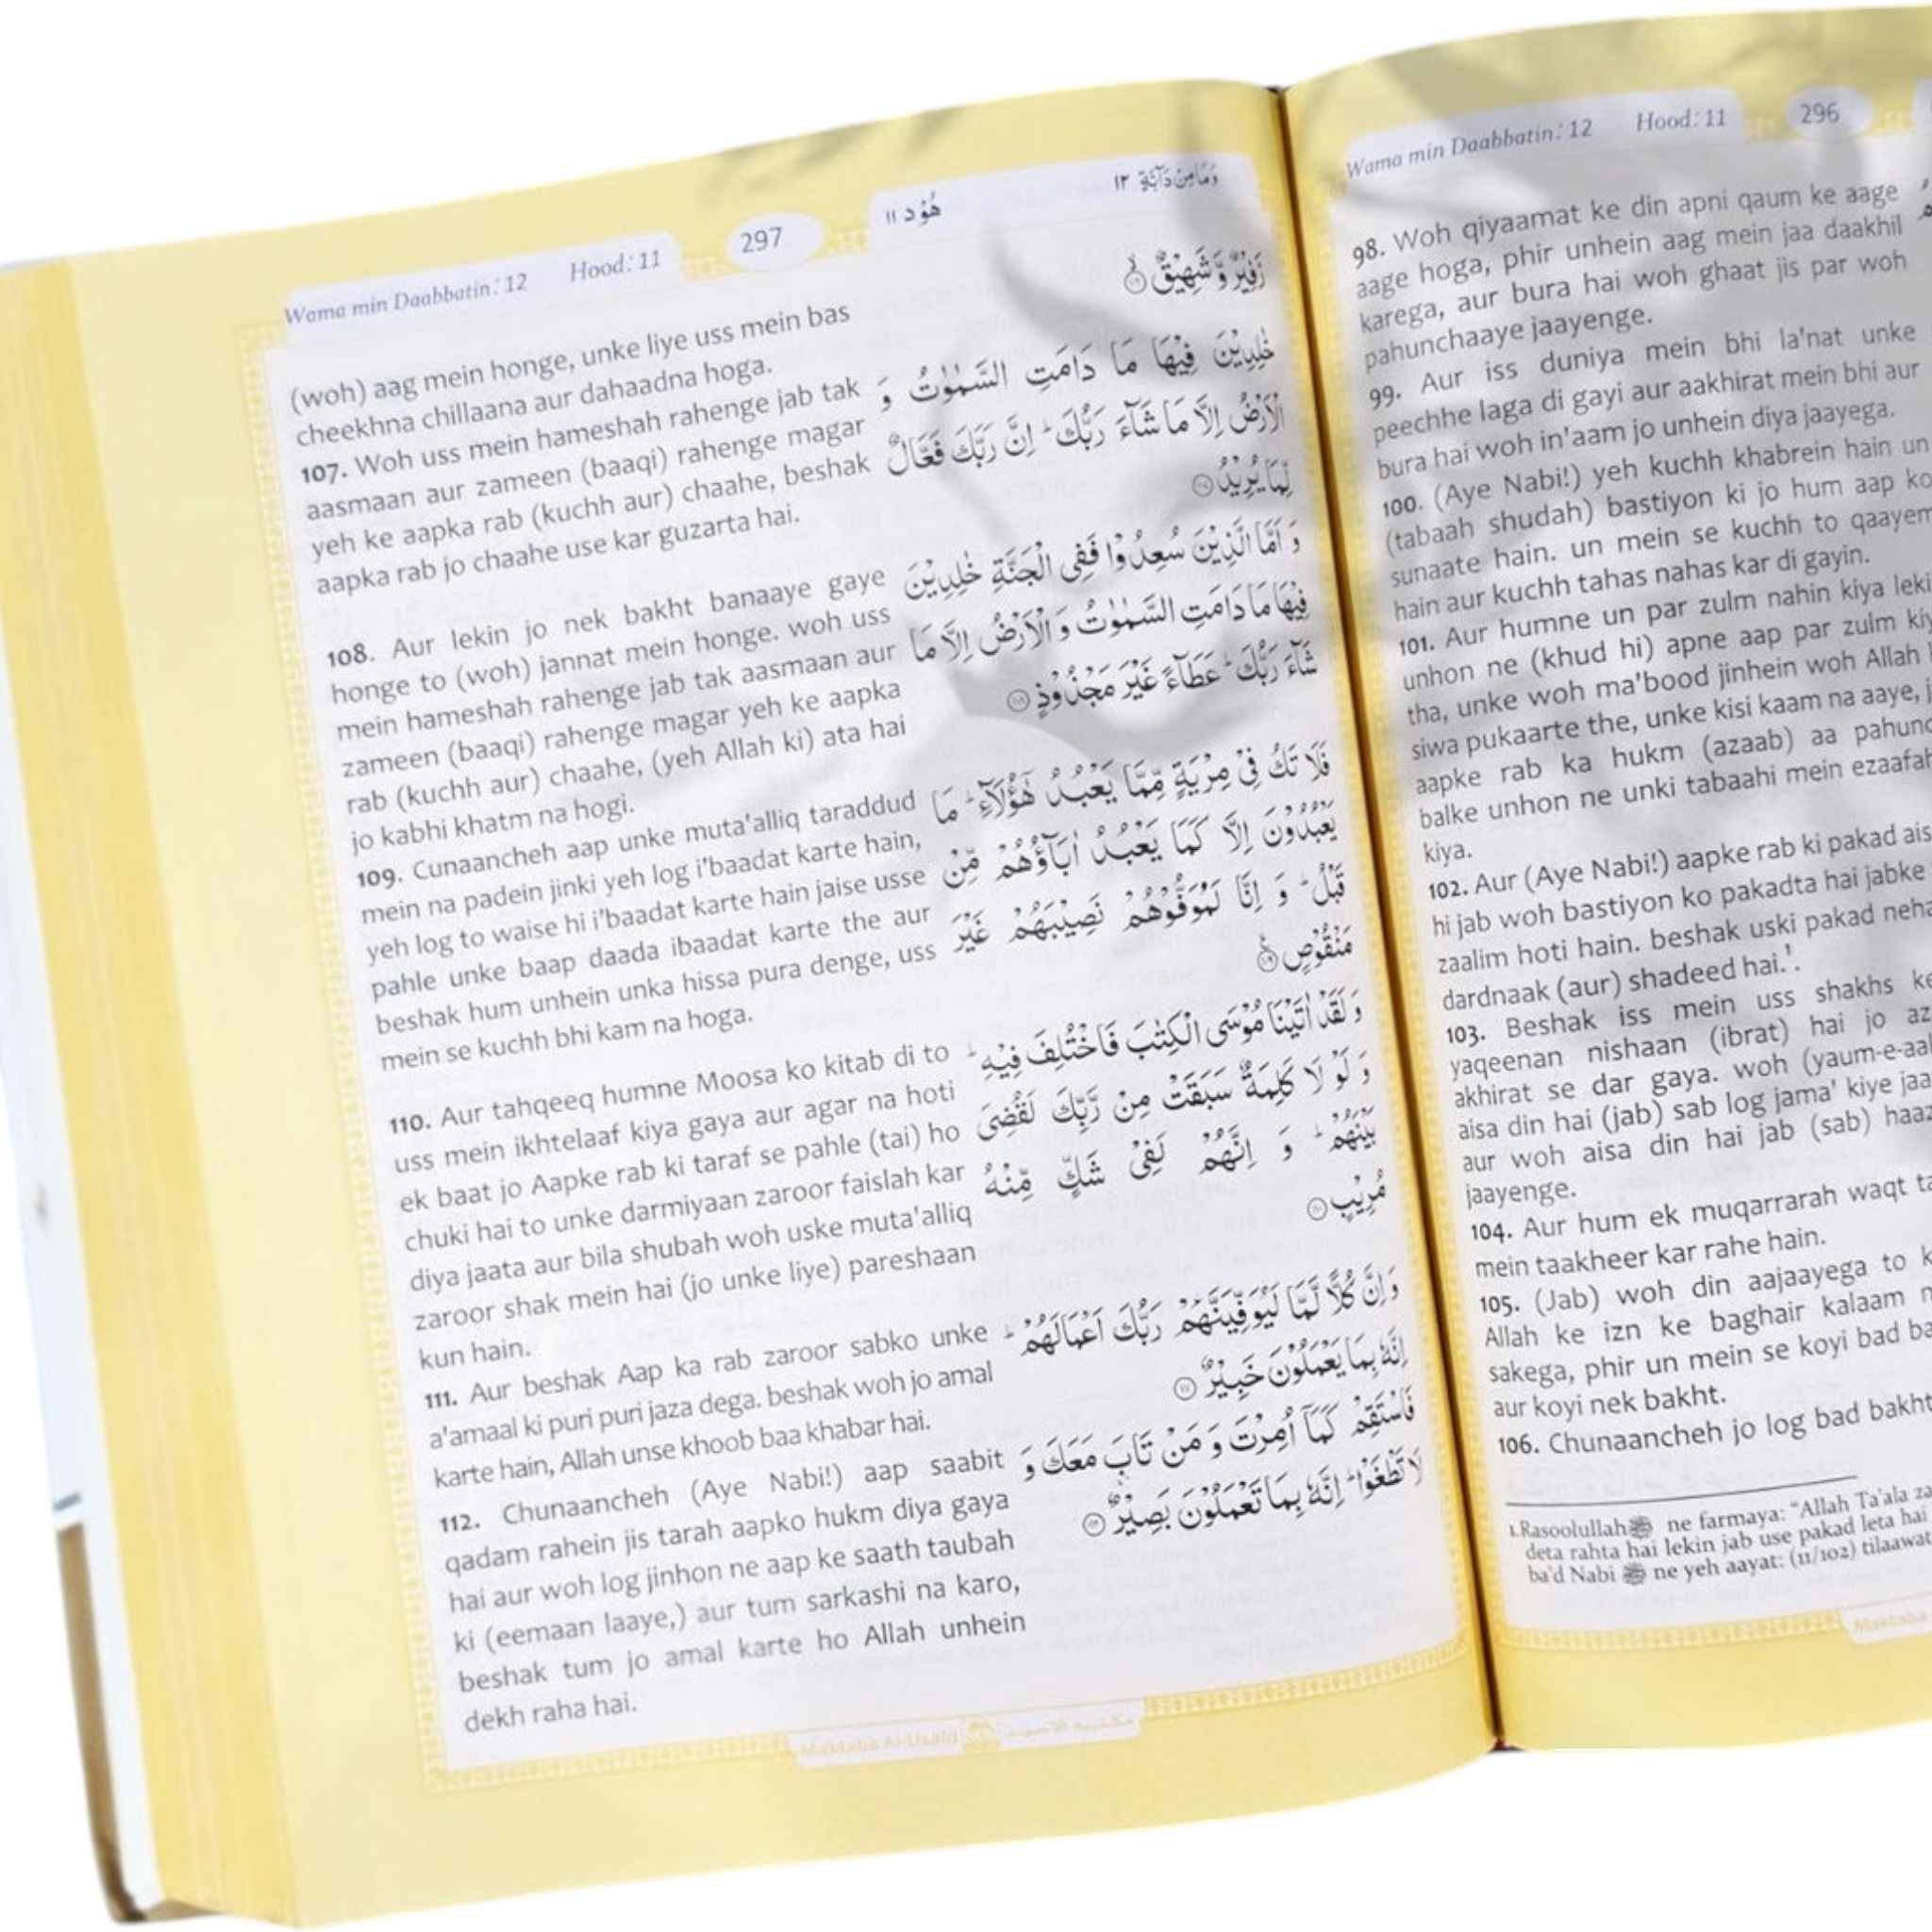 Wama min Daabbatin: 12 Hood: 11 297 هُوْد ١١ وَمَا مِنْ دَآبَّةٍ ١٢
(woh) aag mein honge, unke liye uss mein bas
cheekhna chillaana aur dahaadna hoga.
107. Woh uss mein hameshah rahenge jab tak
aasmaan aur zameen (baaqi) rahenge magar
yeh ke aapka rab (kuchh aur) chaahe, beshak
aapka rab jo chaahe use kar guzarta hai.
108. Aur lekin jo nek bakht banaaye gaye
honge to (woh) jannat mein honge. woh uss
mein hameshah rahenge jab tak aasmaan aur
zameen (baaqi) rahenge magar yeh ke aapka
rab (kuchh aur) chaahe, (yeh Allah ki) ata hai
jo kabhi khatm na hogi.
109. Cunaancheh aap unke muta'alliq taraddud
mein na padein jinki yeh log i'baadat karte hain,
yeh log to waise hi i'baadat karte hain jaise usse
pahle unke baap daada ibaadat karte the aur
beshak hum unhein unka hissa pura denge, uss
mein se kuchh bhi kam na hoga.
110. Aur tahqeeq humne Moosa ko kitab di to
uss mein ikhtelaaf kiya gaya aur agar na hoti
ek baat jo Aapke rab ki taraf se pahle (tai) ho
chuki hai to unke darmiyaan zaroor faislah kar
diya jaata aur bila shubah woh uske muta'alliq
zaroor shak mein hai (jo unke liye) pareshaan
kun hain.
111. Aur beshak Aap ka rab zaroor sabko unke
a'amaal ki puri puri jaza dega. beshak woh jo amal
karte hain, Allah unse khoob baa khabar hai.
112. Chunaancheh (Aye Nabi!) aap saabit
qadam rahein jis tarah aapko hukm diya gaya
hai aur woh log jinhon ne aap ke saath taubah
ki (eemaan laaye,) aur tum sarkashi na karo,
beshak tum jo amal karte ho Allah unhein
dekh raha hai.
زَفِيْرٌ وَّ شَهِيْقٌ ۙ﴿١٠٦﴾
خٰلِدِيْنَ فِيْهَا مَا دَامَتِ السَّمٰوٰتُ وَ
الْاَرْضُ اِلَّا مَا شَآءَ رَبُّكَ ؕ اِنَّ رَبَّكَ فَعَّالٌ
لِّمَا يُرِيْدُ ﴿١٠٧﴾
وَ اَمَّا الَّذِيْنَ سُعِدُوْا فَفِي الْجَنَّةِ خٰلِدِيْنَ
فِيْهَا مَا دَامَتِ السَّمٰوٰتُ وَ الْاَرْضُ اِلَّا مَا
شَآءَ رَبُّكَ ؕ عَطَآءً غَيْرَ مَجْذُوْذٍ ﴿١٠٨﴾
فَلَا تَكُ فِيْ مِرْيَةٍ مِّمَّا يَعْبُدُ هٰۤؤُلَآءِ ؕ مَا
يَعْبُدُوْنَ اِلَّا كَمَا يَعْبُدُ اٰبَآؤُهُمْ مِّنْ
قَبْلُ ؕ وَ اِنَّا لَمُوَفُّوْهُمْ نَصِيْبَهُمْ غَيْرَ
مَنْقُوْصٍ ﴿١٠٩﴾
وَ لَقَدْ اٰتَيْنَا مُوْسَى الْكِتٰبَ فَاخْتُلِفَ فِيْهِ ؕ
وَ لَوْ لَا كَلِمَةٌ سَبَقَتْ مِنْ رَّبِّكَ لَقُضِيَ
بَيْنَهُمْ ؕ وَ اِنَّهُمْ لَفِيْ شَكٍّ مِّنْهُ
مُرِيْبٍ ﴿١١٠﴾
وَ اِنَّ كُلًّا لَّمَّا لَيُوَفِّيَنَّهُمْ رَبُّكَ اَعْمَالَهُمْ ؕ
اِنَّهٗ بِمَا يَعْمَلُوْنَ خَبِيْرٌ ﴿١١١﴾
فَاسْتَقِمْ كَمَآ اُمِرْتَ وَ مَنْ تَابَ مَعَكَ وَ
لَا تَطْغَوْا ؕ اِنَّهٗ بِمَا تَعْمَلُوْنَ بَصِيْرٌ ﴿١١٢﴾
Maktaba Al-Usaid
Wama min Daabbatin: 12 Hood: 11 296
98. Woh qiyaamat ke din apni qaum ke aage
aage hoga, phir unhein aag mein jaa daakhil
karega, aur bura hai woh ghaat jis par woh
pahunchaaye jaayenge.
99. Aur iss duniya mein bhi la'nat unke
peechhe laga di gayi aur aakhirat mein bhi aur
bura hai woh in'aam jo unhein diya jaayega.
100. (Aye Nabi!) yeh kuchh khabrein hain un
(tabaah shudah) bastiyon ki jo hum aap ko
sunaate hain. un mein se kuchh to qaayem
hain aur kuchh tahas nahas kar di gayin.
101. Aur humne un par zulm nahin kiya leki
unhon ne (khud hi) apne aap par zulm kiy
tha, unke woh ma'bood jinhein woh Allah
siwa pukaarte the, unke kisi kaam na aaye,
aapke rab ka hukm (azaab) aa pahunc
balke unhon ne unki tabaahi mein ezaafah
kiya.
102. Aur (Aye Nabi!) aapke rab ki pakad ais
hi jab woh bastiyon ko pakadta hai jabke
zaalim hoti hain. beshak uski pakad neha
dardnaak (aur) shadeed hai.¹.
103. Beshak iss mein uss shakhs ke
yaqeenan nishaan (ibrat) hai jo az
akhirat se dar gaya. woh (yaum-e-aa
aisa din hai (jab) sab log jama' kiye jaa
aur woh aisa din hai jab (sab) haaz
jaayenge.
104. Aur hum ek muqarrarah waqt ta
mein taakheer kar rahe hain.
105. (Jab) woh din aajaayega to k
Allah ke izn ke baghair kalaam n
sakega, phir un mein se koyi bad ba
aur koyi nek bakht.
106. Chunaancheh jo log bad bakht
1.Rasoolullahﷺ ne farmaya: "Allah Ta'ala za
deta rahta hai lekin jab use pakad leta hai
ba'd Nabi ﷺ ne yeh aayat: (11/102) tilaawat
Maktaba